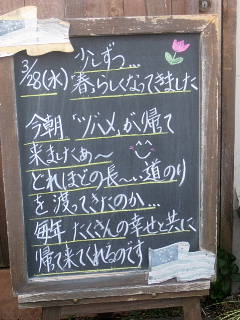 3/28(水) 少しずつ...
春らしくなってきました
今朝 "ツバメ"が帰て
来ましたぁ〜
どれほどの長〜い道のり
を渡ってきたのか...
毎年 たくさんの幸せと共に
帰て来てくれるのです